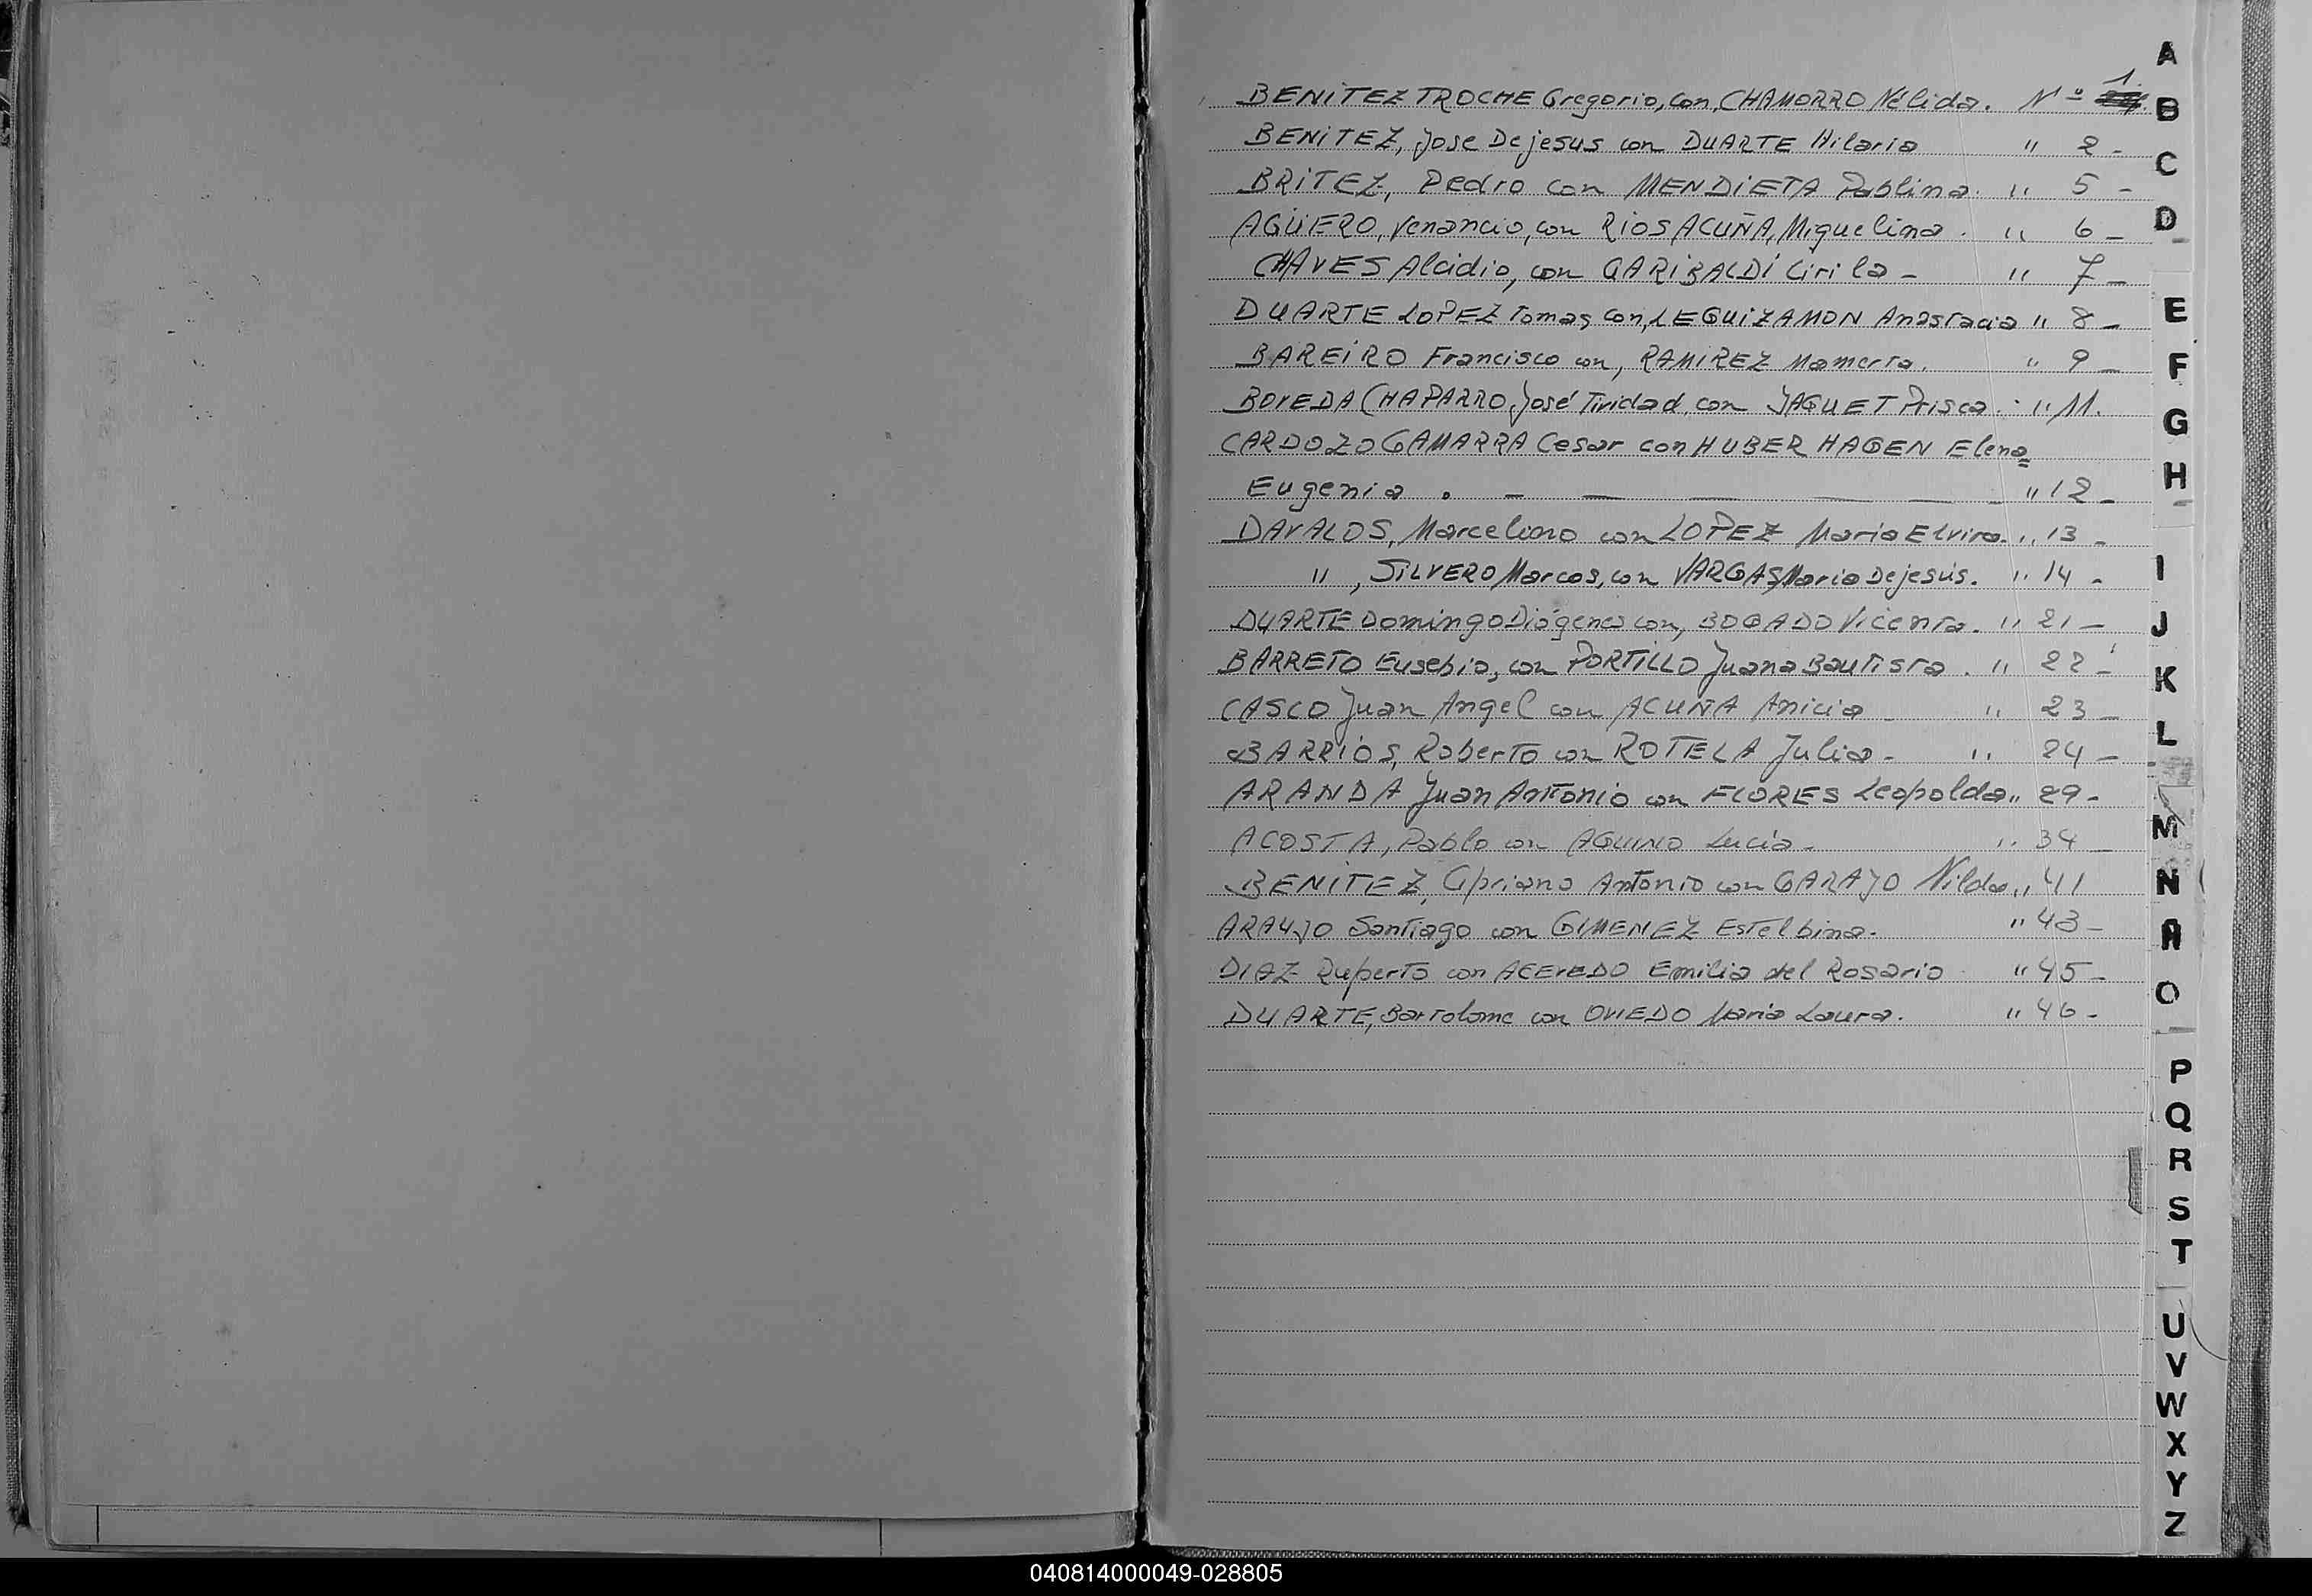 BENITEZ TROCHE Gregorio, con, CHAMORRO Nélida. Nº 1.
BENITEZ, Jose Dejesus con DUARTE Hilaria " 2 -
BRITEZ, Pedro con MENDIETA Pablina. " 5 -
AGÜERO, Venancio, con RIOS ACUÑA, Miguelina. " 6 -
CHAVES Alcidio, con GARIBALDI Cirila - " 7 -
DUARTE LOPEZ Tomas con, LEGUIZAMON Anastacia " 8 -
BAREIRO Francisco con, RAMIREZ Mamerta. " 9 -
BOVEDA CHAPARRO, José Tividad, con YAGUET Prisca. - " 11.
CARDOZO GAMARRA Cesar con HUBER HAGEN Elena=
Eugenia . - — — — — " 12 -
DAVALOS, Marcelino con LOPEZ Maria Elvira. " 13 -
" , SILVERO Marcos, con VARGAS, Maria Dejesús. " 14 -
DUARTE Domingo Diógenes con, BOGADO Vicenta. " 21 -
BARRETO Eusebio, con PORTILLO Juana Bautista. " 22 -
CASCO Juan Angel con ACUÑA Anicia - " 23 -
BARRIOS, Roberto con ROTELA Julia - " 24 -
ARANDA Juan Antonio con FLORES Leopolda " 29 -
ACOSTA, Pablo con AQUINO Lucia - " 34 -
BENITEZ, Cipriano Antonio con GARAYO Nilda " 41
ARAUJO Santiago con GIMENEZ Estelbina. " 43 -
DIAZ Ruperto con ACEVEDO Emilia del Rosario - " 45 -
DUARTE, Bartolome con OVIEDO Maria Laura. " 46 -
A
B
C
D
E
F
G
H
I
J
K
L
M
N
Ñ
O
P
Q
R
S
T
U
V
W
X
Y
Z
040814000049-028805